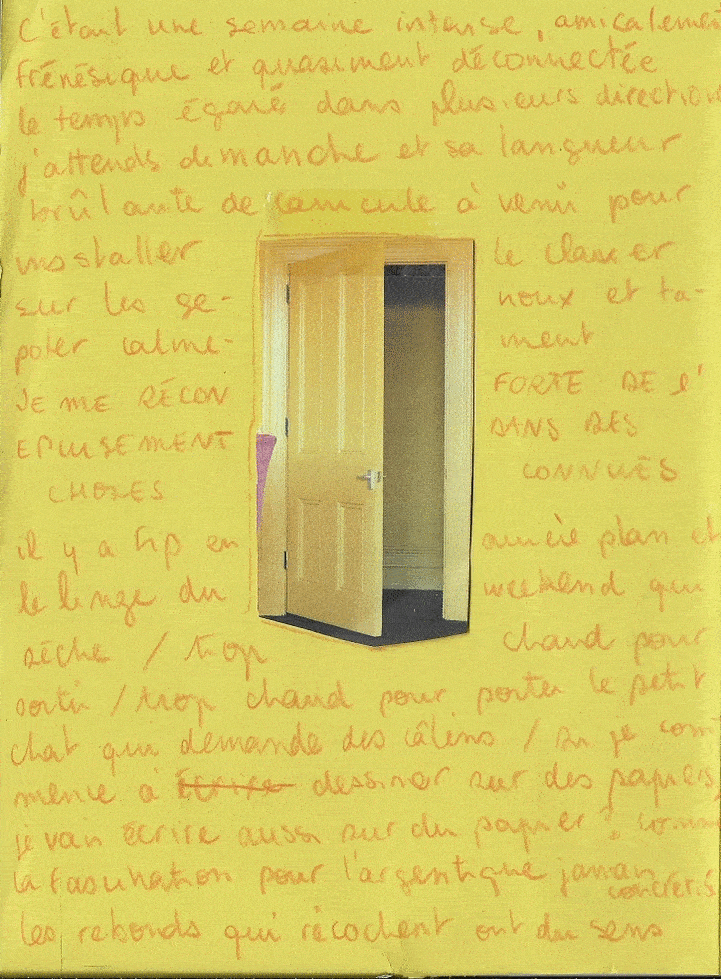 C'était une semaine intense, amicalement
frénésique et quasiment déconnectée
le temps égaré dans plusieurs direction
j'attends dimanche et sa langueur
brûlante de canicule à venir pour
installer le clavier
sur les ge- noux et ta-
poter calme- ment
JE ME RÉCON FORTE DE l'
EPUISEMENT DANS DES
CHOSES CONNUES
il y a hip en arrière plan et
le linge du weekend qui
sèche / trop chaud pour
sortir / trop chaud pour porter le petit
chat qui demande des câlins / si je com
mence à écrire dessiner sur des papiers,
je vais écrire aussi sur du papier ? comme
la fascination pour l'argentique jamais
concrétisé
les rebonds qui ricochent ont du sens